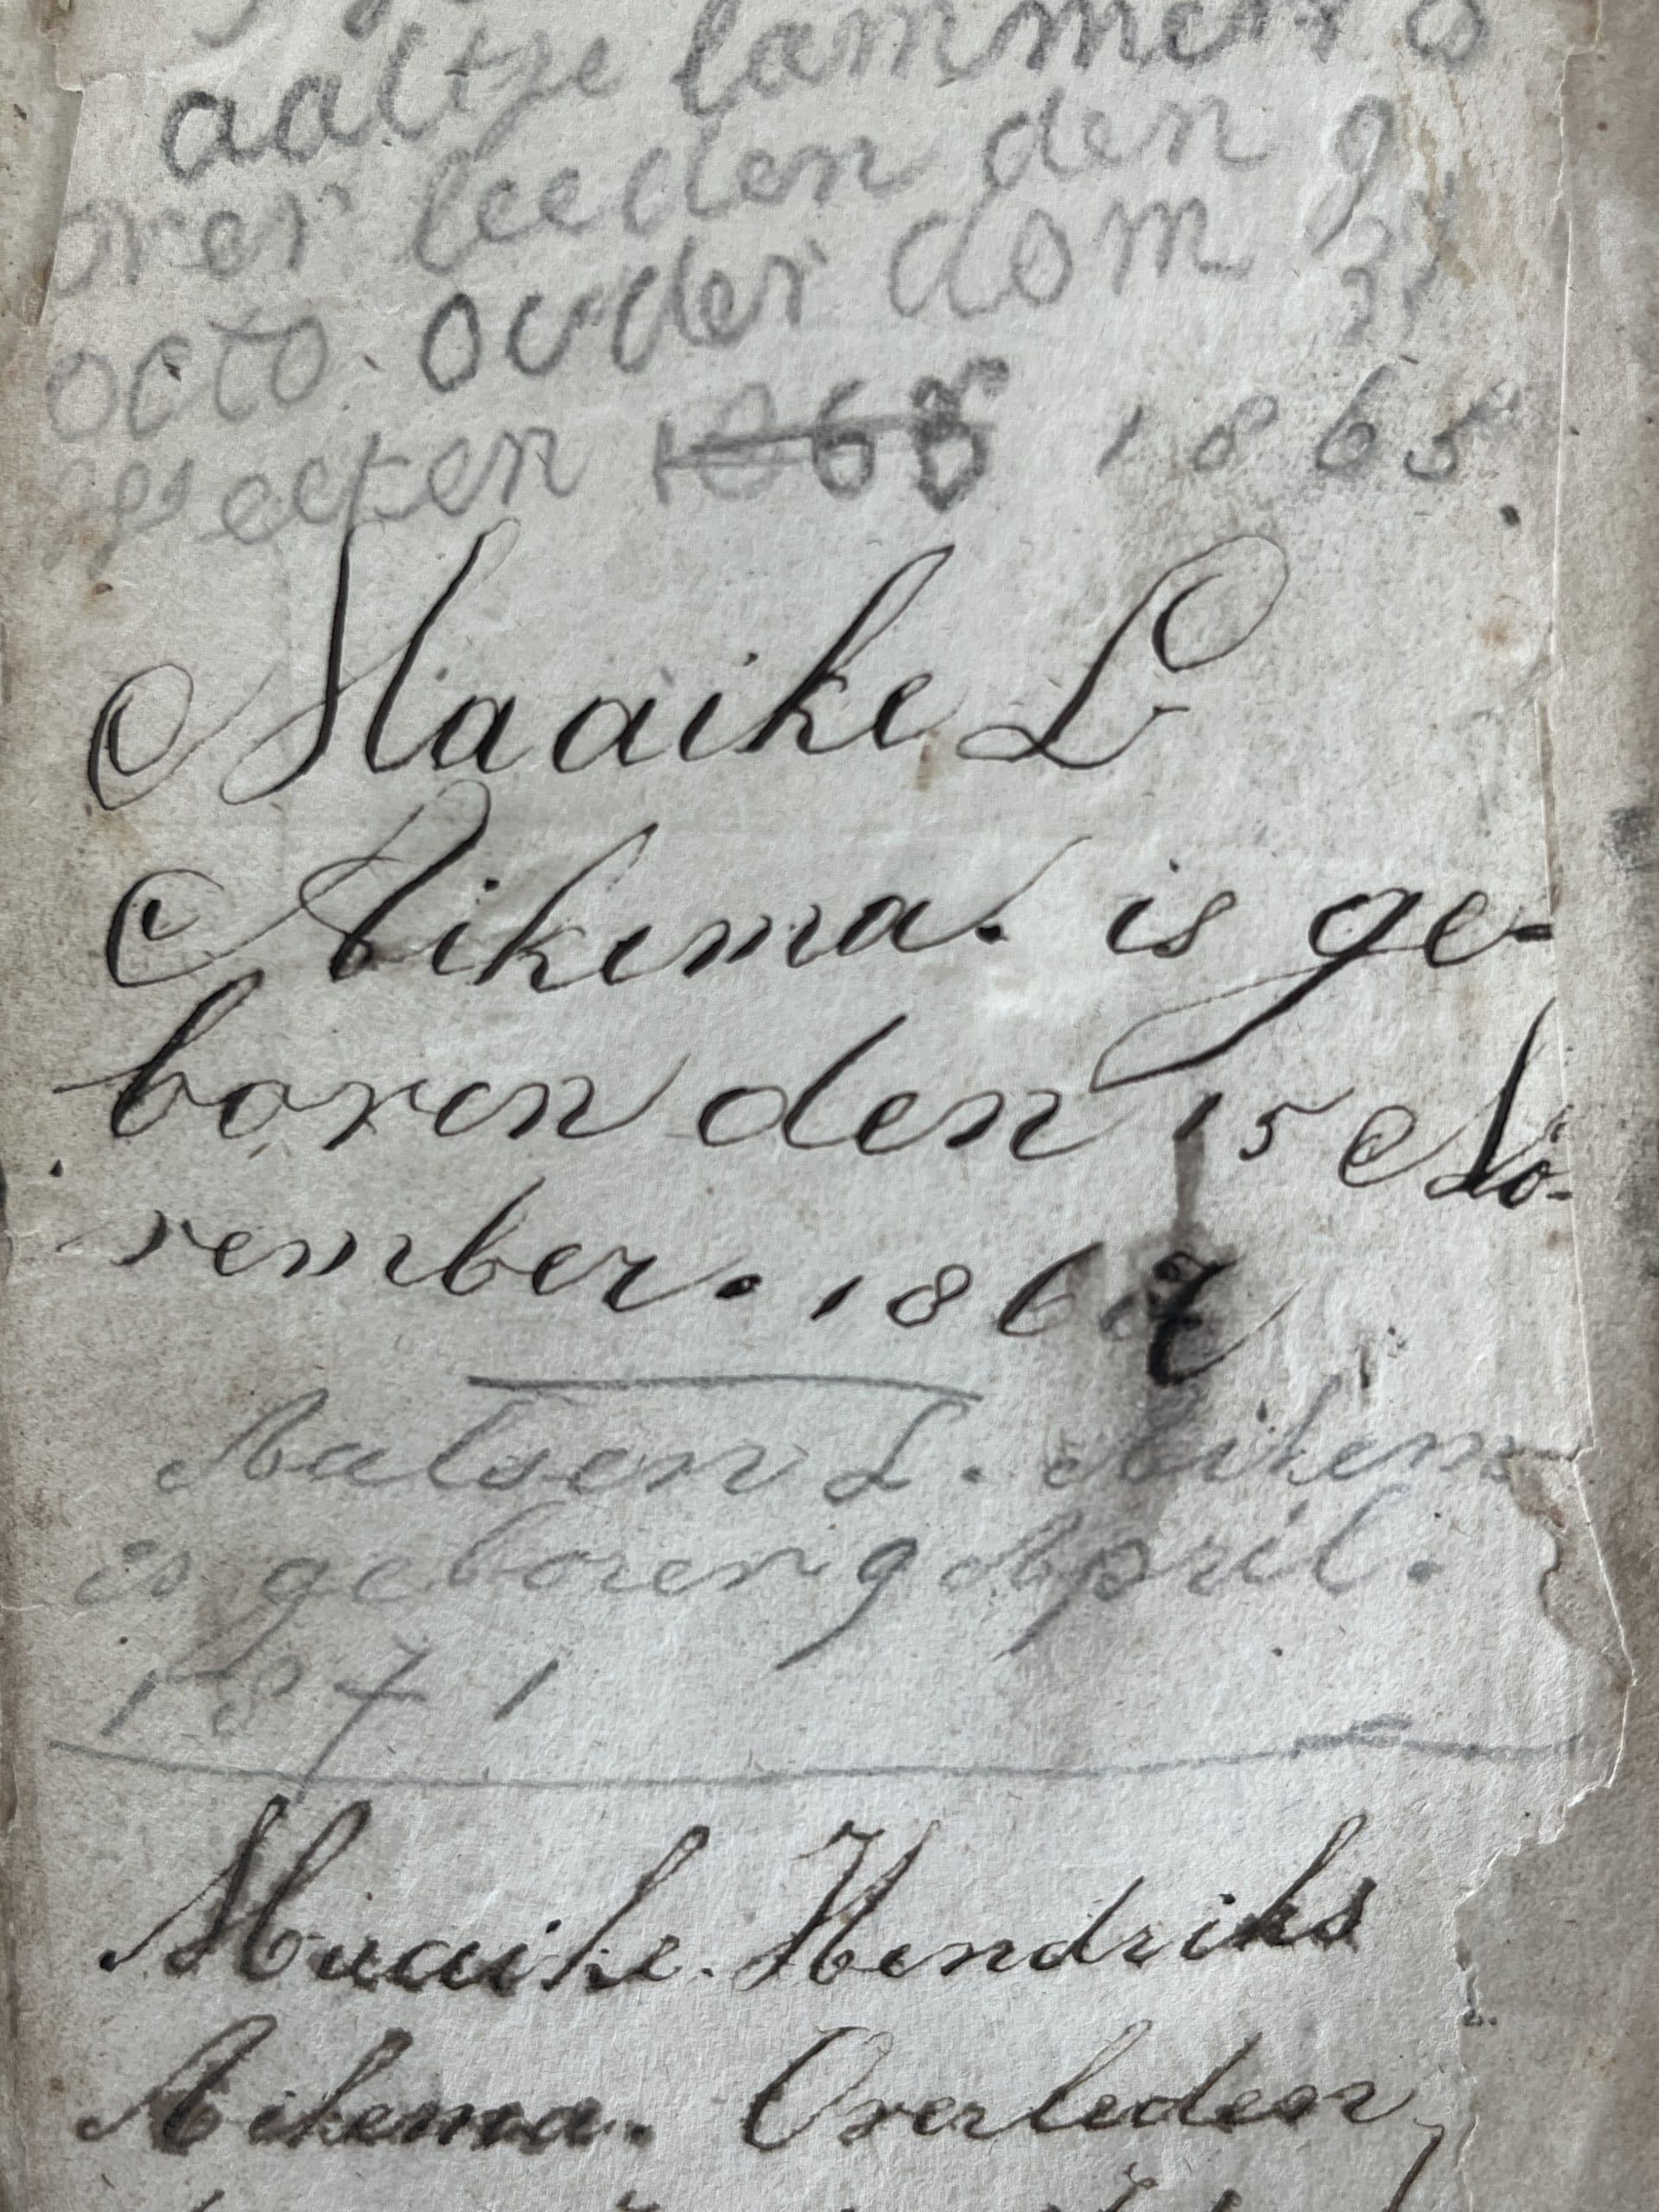 aaltje lammerts
over leeden den 9
octo. ouder dom
1868 1865
Maaike L
Aikema. is ge-
boren den 15 No-
vember. 1867
Aalsen L. Aikem
is geboren 9 April.
1871
Maaike. Hendriks
Aikema. Overleden